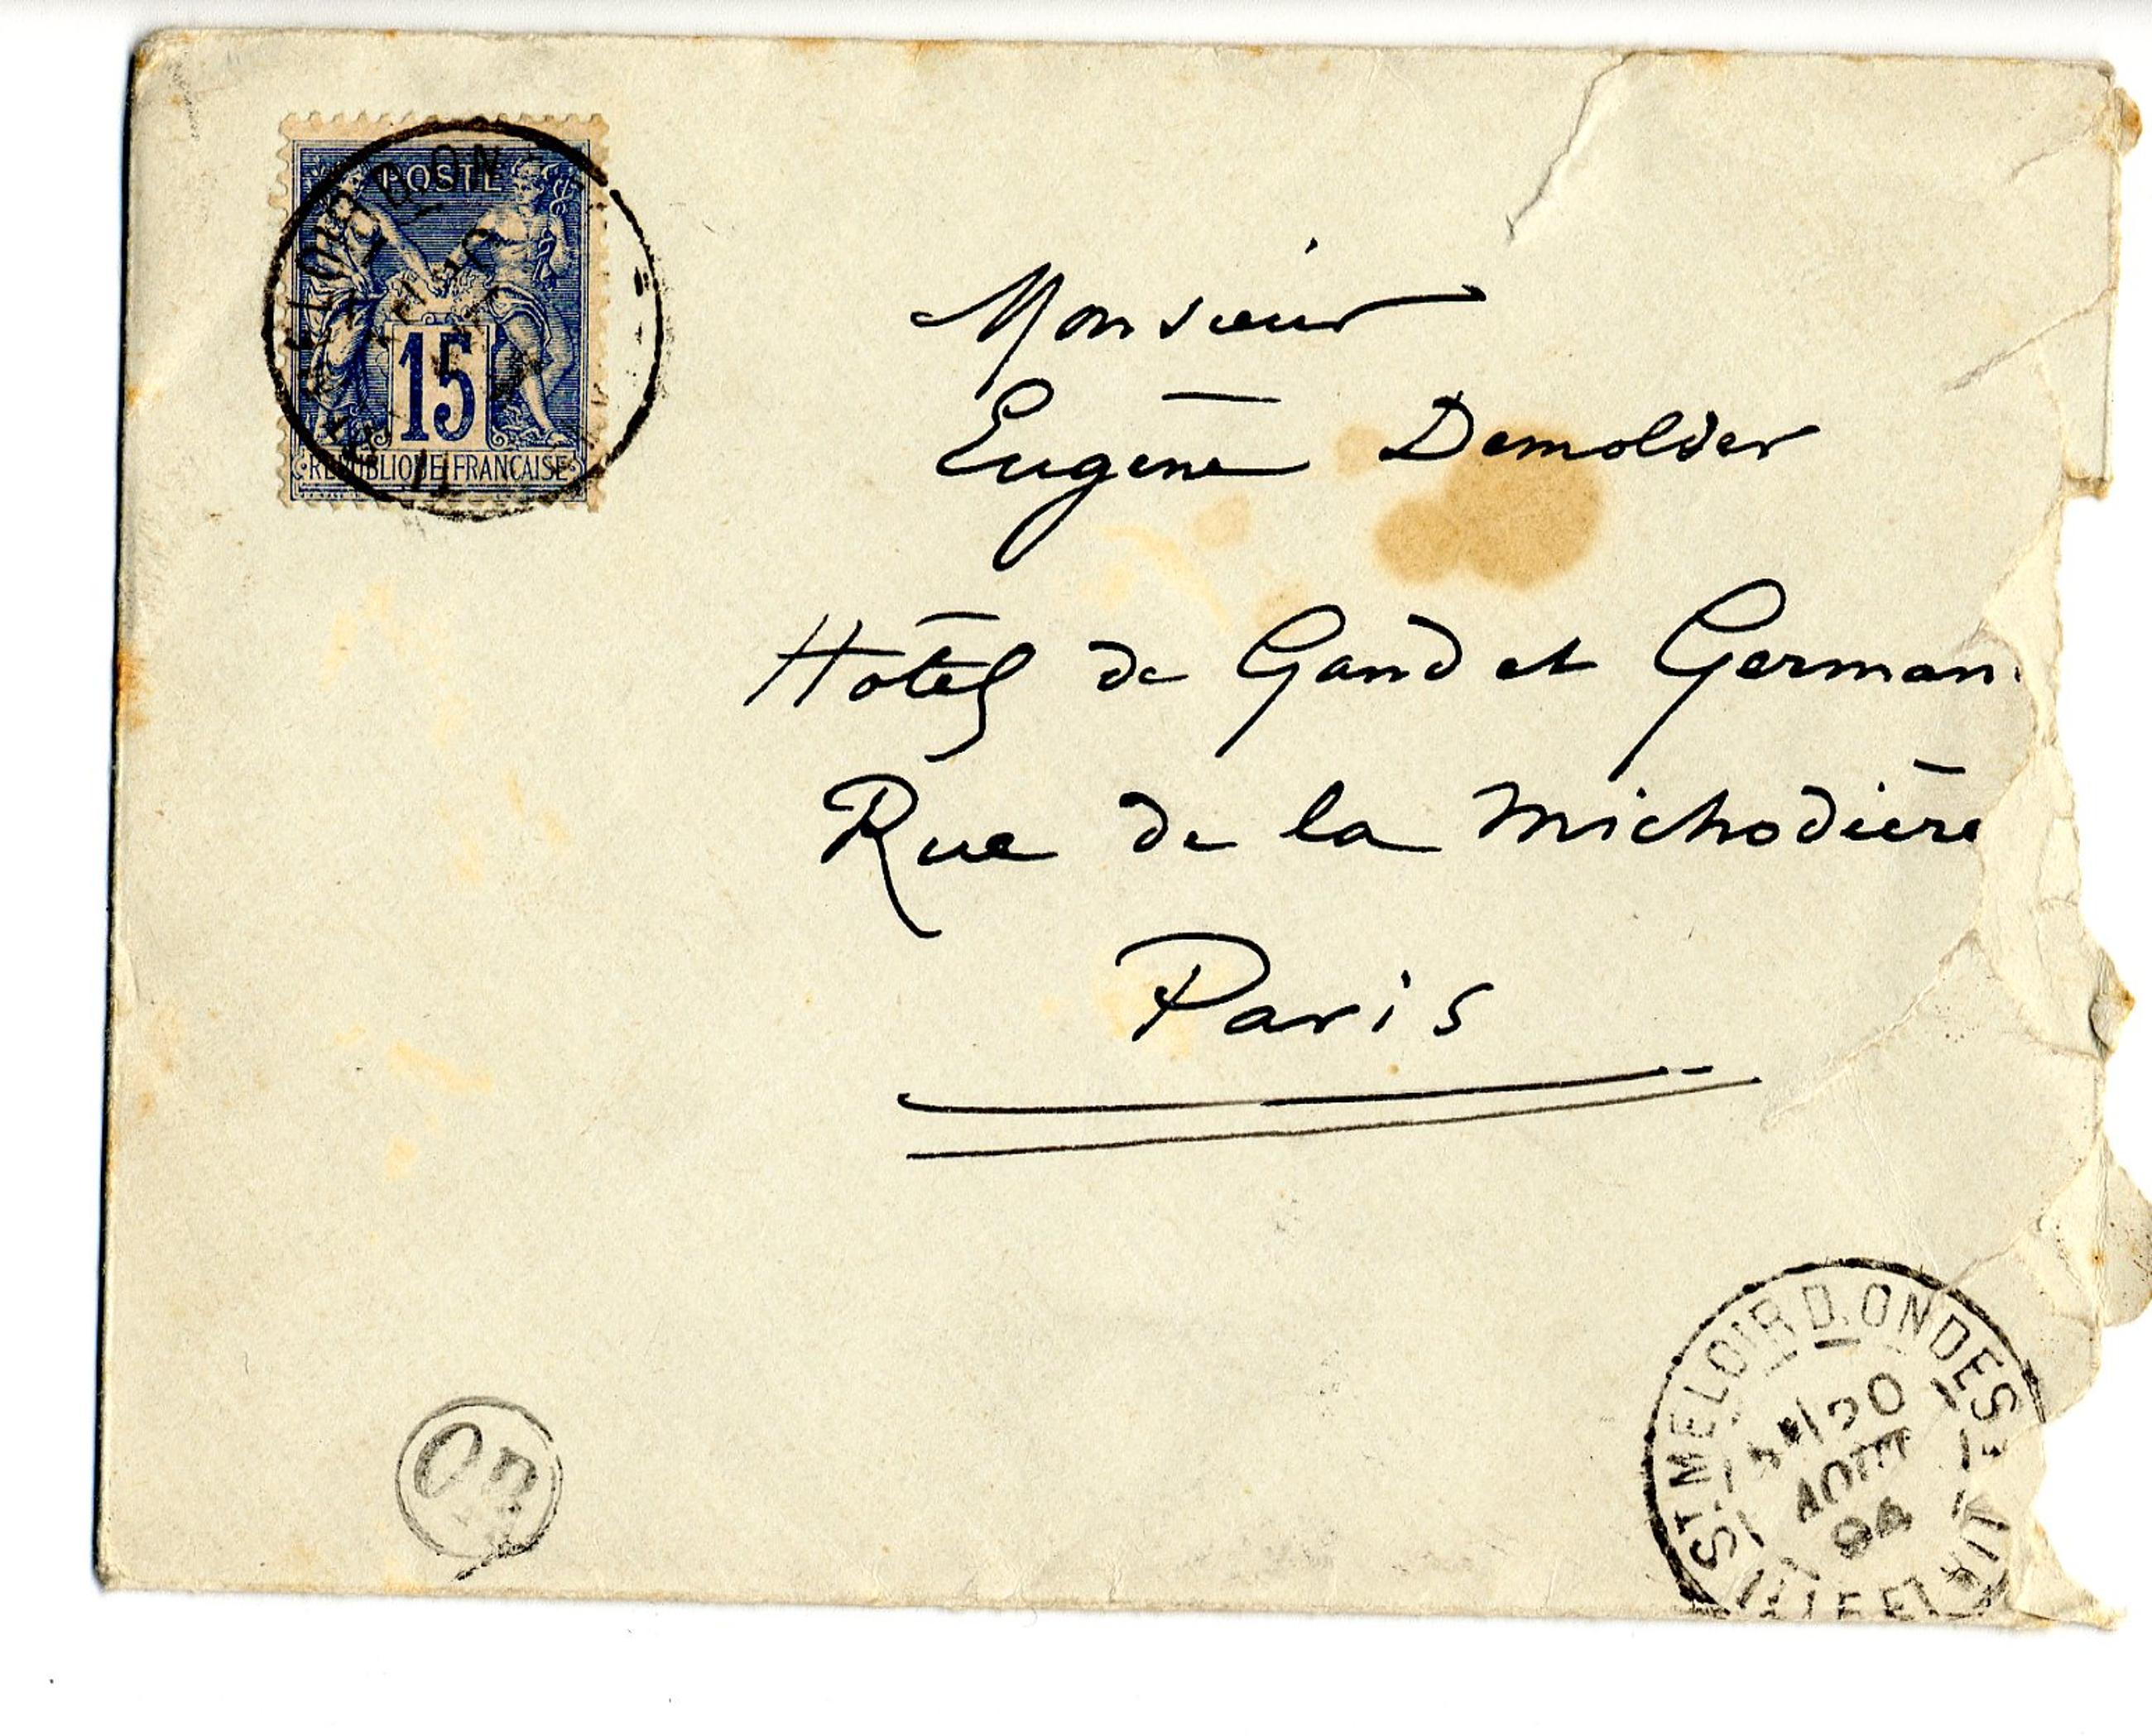 POSTE
15
REPUBLIQUE FRANÇAISE
Monsieur
Eugène Demolder
Hôtel de Gand et German
Rue de la Michodière
Paris
OR
ST MELOIR D. ONDES
20
AOUT
94